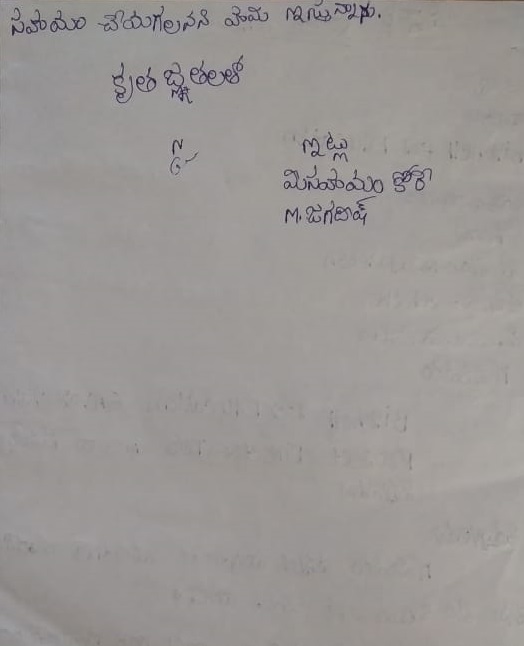 సహాయం చేయగలనని హామి ఇస్తున్నాను.
కృతజ్ఞతలతో
ఇట్లు
మీసహాయం కోరే
M. జగదీష్